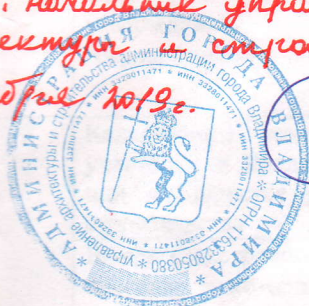 начальник управ
ектуры и строи
бря 2019г.
* АДМИНИСТРАЦИЯ ГОРОДА ВЛАДИМИРА *
управление архитектуры и строительства администрации города Владимира * ОГРН 1163328050380 *
ИНН 3328011471 * ИНН 3328011471 * ИНН 3328011471 * ИНН 3328011471 *